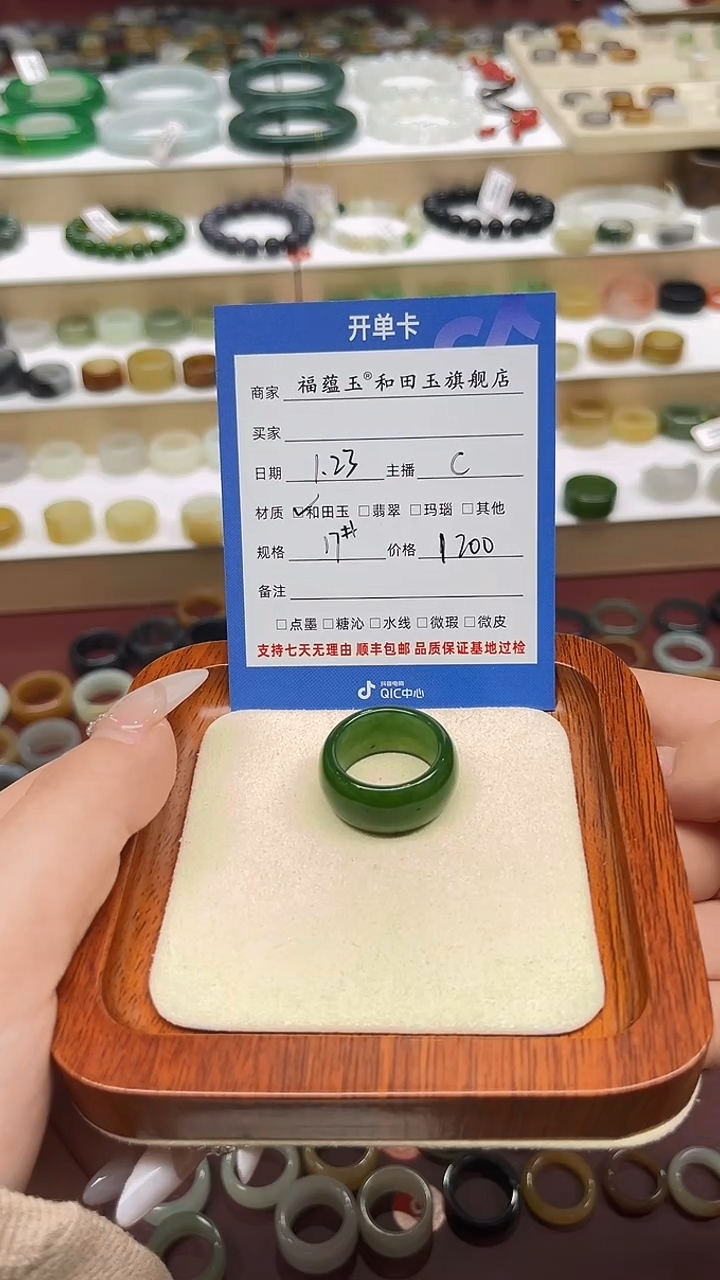 开单卡
商家 福蕴玉®和田玉旗舰店
买家
日期 1.23 主播 C
材质 ☑和田玉 □翡翠 □玛瑙 □其他
规格 17# 价格 1200
备注
□点墨 □糖沁 □水线 □微瑕 □微皮
支持七天无理由 顺丰包邮 品质保证基地过检
抖音电商
QIC中心